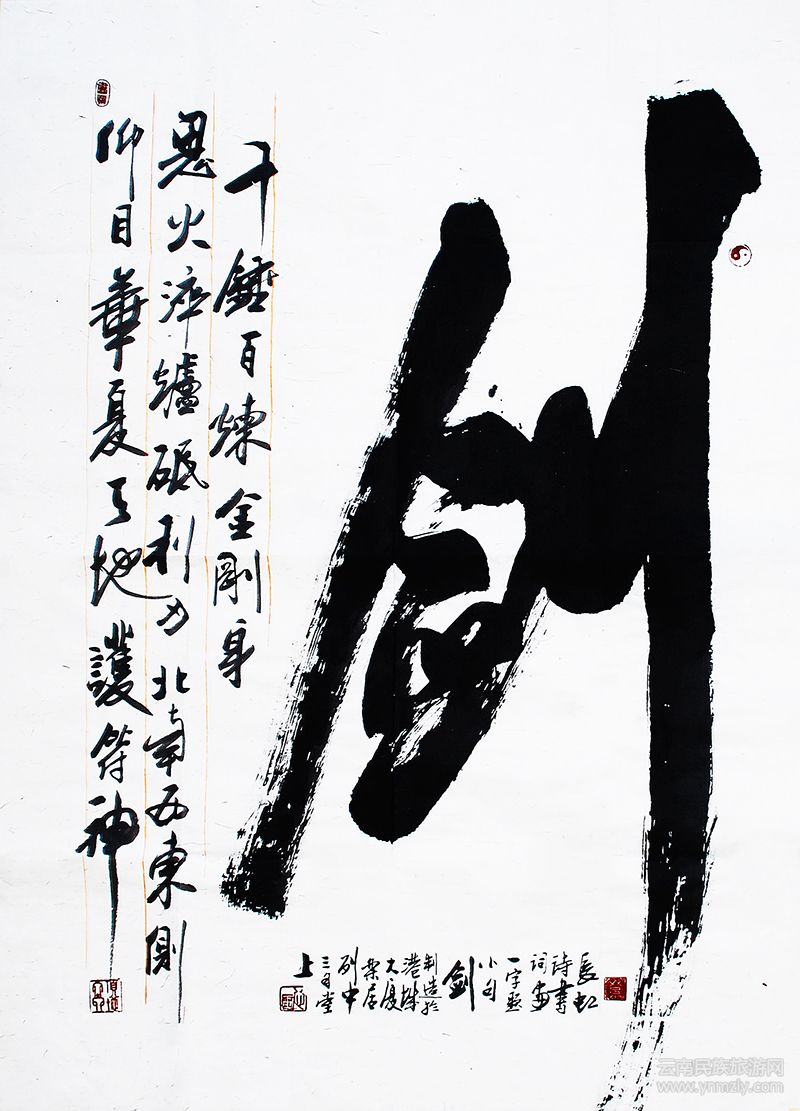 劍
千錘百煉金剛身
火淬爐砥利北南西東側
仰目華夏天地護符神
長虹
詩書
詞畫
一字
小句
剑
制造於
港
大廈
居
列中
三堂
上
云南民族旅游网
www.ynmzly.com